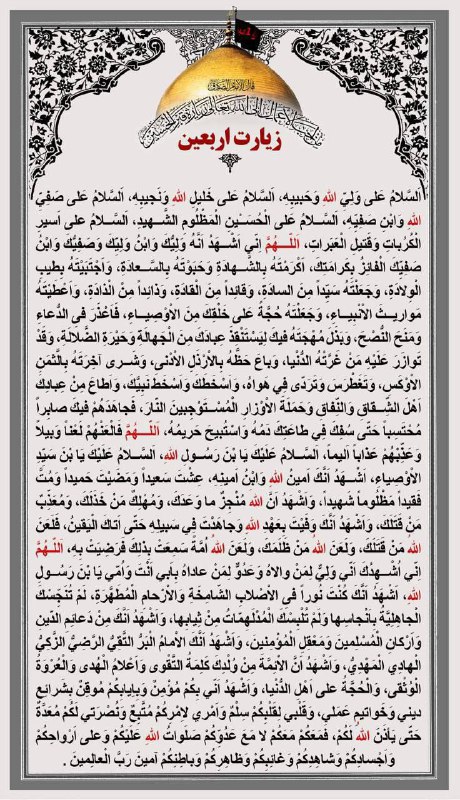 زیارت اربعین
اَلسَّلامُ عَلى وَلِيِّ اللهِ وَحَبيبِهِ، اَلسَّلامُ عَلى خَليلِ اللهِ وَنَجيبِهِ، اَلسَّلامُ عَلى صَفِيِّ
اللهِ وَابْنِ صَفِيِّهِ، اَلسَّلامُ عَلى الْحُسَيْنِ الْمَظْلُومِ الشَّهيدِ، اَلسَّلامُ على اَسيرِ
الْكُرُباتِ وَقَتيلِ الْعَبَراتِ، اَللّهُمَّ اِنّي اَشْهَدُ اَنَّهُ وَلِيُّكَ وَابْنُ وَلِيِّكَ وَصَفِيُّكَ وَابْنُ
صَفِيِّكَ الْفائِزُ بِكَرامَتِكَ، اَكْرَمْتَهُ بِالشَّهادَةِ وَحَبَوْتَهُ بِالسَّعادَةِ، وَاَجْتَبَيْتَهُ بِطيبِ
الْوِلادَةِ، وَجَعَلْتَهُ سَيِّداً مِنَ السادَةِ، وَقائِداً مِنَ الْقادَةِ، وَذائِداً مِنْ الْذادَةِ، وَاَعْطَيْتَهُ
مَواريثَ الاَنْبِياءِ، وَجَعَلْتَهُ حُجَّةً عَلى خَلْقِكَ مِنَ الاَوْصِياءِ، فَاَعْذَرَ فى الدُّعاءِ
وَمَنَحَ النُّصْحَ، وَبَذَلَ مُهْجَتَهُ فيكَ لِيَسْتَنْقِذَ عِبادَكَ مِنَ الْجَهالَةِ وَحَيْرَةِ الضَّلالَةِ، وَقَدْ
تَوازَرَ عَلَيْهِ مَنْ غَرَّتْهُ الدُّنْيا، وَباعَ حَظَّهُ بِالاَرْذَلِ الاَدْنى، وَشَرى آخِرَتَهُ بِالثَّمَنِ
الاَوْكَسِ، وَتَغَطْرَسَ وَتَرَدّى فِي هَواهُ، وَاَسْخَطَكَ وَاَسْخَطَ نَبِيَّكَ، وَاَطاعَ مِنْ عِبادِكَ
اَهْلَ الشِّقاقِ وَالنِّفاقِ وَحَمَلَةَ الاَوْزارِ الْمُسْتَوْجِبينَ النّارَ، فَجاهَدَهُمْ فيكَ صابِراً
مُحْتَسِباً حَتّى سُفِكَ فِي طاعَتِكَ دَمُهُ وَاسْتُبيحَ حَريمُهُ، اَللّهُمَّ فَالْعَنْهُمْ لَعْناً وَبيلاً
وَعَذِّبْهُمْ عَذاباً اَليماً، اَلسَّلامُ عَلَيْكَ يَا بْنَ رَسُولِ اللهِ، اَلسَّلامُ عَلَيْكَ يَا بْنَ سَيِّدِ
الاَوْصِياءِ، اَشْهَدُ اَنَّكَ اَمينُ اللهِ وَابْنُ اَمينِهِ، عِشْتَ سَعيداً وَمَضَيْتَ حَميداً وَمُتَّ
فَقيداً مَظْلُوماً شَهيداً، وَاَشْهَدُ اَنَّ اللهَ مُنْجِزٌ ما وَعَدَكَ، وَمُهْلِكٌ مَنْ خَذَلَكَ، وَمُعَذِّبٌ
مَنْ قَتَلَكَ، وَاَشْهَدُ اَنَّكَ وَفَيْتَ بِعَهْدِ اللهِ وَجاهَدْتَ فِي سَبيلِهِ حَتّى اَتاكَ الْيَقينُ، فَلَعَنَ
اللهُ مَنْ قَتَلَكَ، وَلَعَنَ اللهُ مَنْ ظَلَمَكَ، وَلَعَنَ اللهُ اُمَّةً سَمِعَتْ بِذلِكَ فَرَضِيَتْ بِهِ، اَللّهُمَّ
اِنّي اُشْهِدُكَ اَنّي وَلِيٌّ لِمَنْ والاهُ وَعَدُوٌّ لِمَنْ عاداهُ بِاَبي اَنْتَ وَاُمّي يَا بْنَ رَسُولِ
اللهِ، اَشْهَدُ اَنَّكَ كُنْتَ نُوراً فى الاَصْلابِ الشّامِخَةِ وَالاَرْحامِ الْمُطَهَّرَةِ، لَمْ تُنَجِّسْكَ
الْجاهِلِيَّةُ بِاَنْجاسِها وَلَمْ تُلْبِسْكَ الْمُدْلَهِمّاتُ مِنْ ثِيابِها، وَاَشْهَدُ اَنَّكَ مِنْ دَعائِمِ الدّينِ
وَاَرْكانِ الْمُسْلِمينَ وَمَعْقِلِ الْمُؤْمِنينَ، وَاَشْهَدُ اَنَّكَ الاِمامُ الْبَرُّ التَّقِيُّ الرَّضِيُّ الزَّكِيُّ
الْهادِي الْمَهْدِيُّ، وَاَشْهَدُ اَنَّ الاَئِمَّةَ مِنْ وُلْدِكَ كَلِمَةُ التَّقْوى وَاَعْلامُ الْهُدى وَالْعُرْوَةُ
الْوُثْقى، وَالْحُجَّةُ على اَهْلِ الدُّنْيا، وَاَشْهَدُ اَنّي بِكُمْ مُؤْمِنٌ وَبِاِيابِكُمْ مُوقِنٌ بِشَرائِعِ
ديني وَخَواتيمِ عَمَلي، وَقَلْبي لِقَلْبِكُمْ سِلْمٌ وَاَمْري لاَمْرِكُمْ مُتَّبِعٌ وَنُصْرَتي لَكُمْ مُعَدَّةٌ
حَتّى يَأذَنَ اللهُ لَكُمْ، فَمَعَكُمْ مَعَكُمْ لا مَعَ عَدُوِّكُمْ صَلَواتُ اللهِ عَلَيْكُمْ وَعلى اَرْواحِكُمْ
وَاَجْسادِكُمْ وَشاهِدِكُمْ وَغائِبِكُمْ وَظاهِرِكُمْ وَباطِنِكُمْ آمينَ رَبَّ الْعالِمينَ .